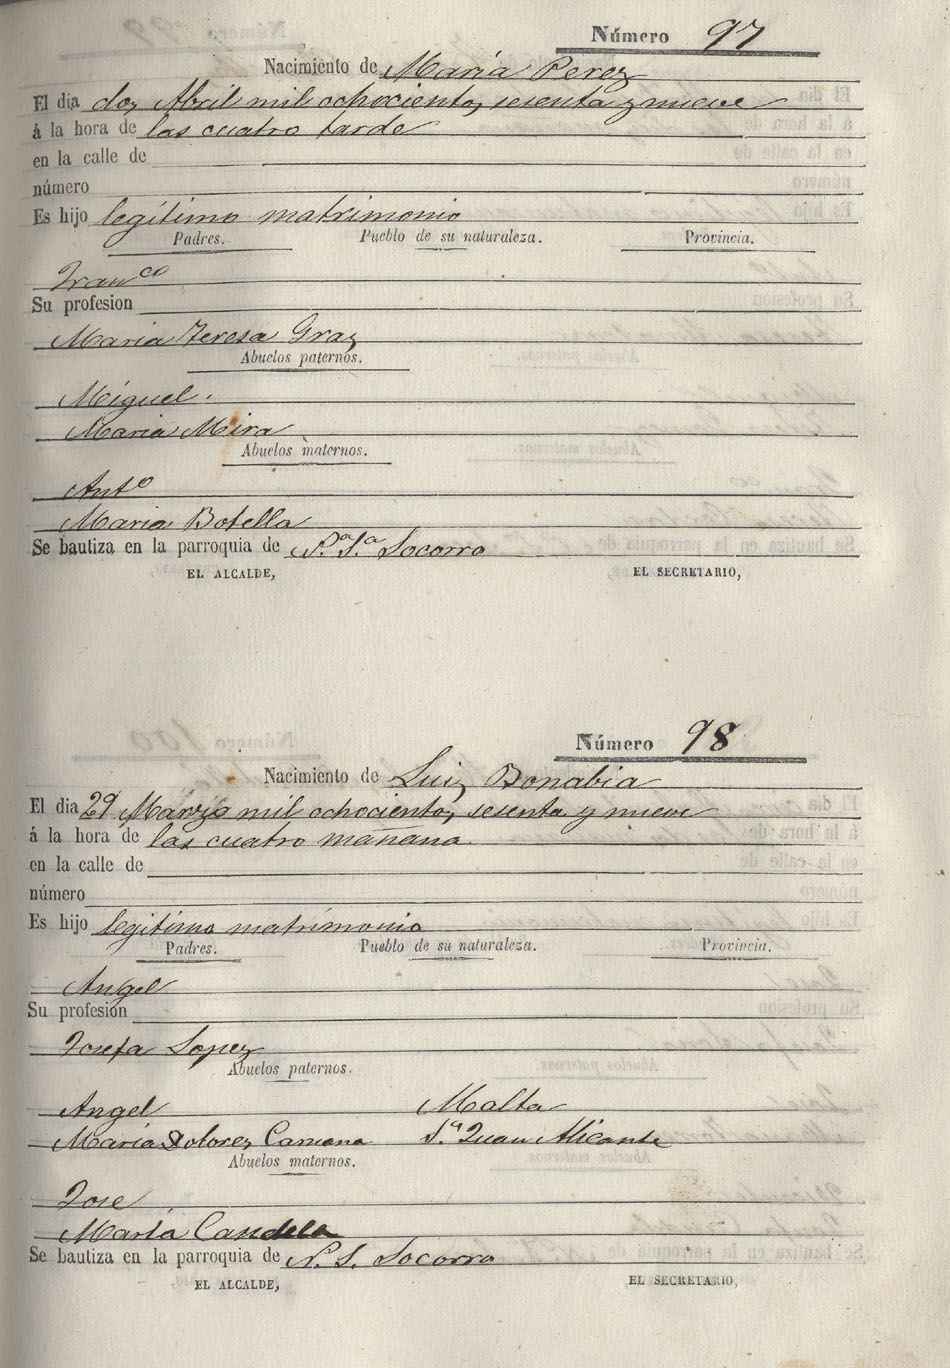 Número 97
Nacimiento de María Perez
El dia dos Abril mil ochocientos sesenta y nueve
á la hora de las cuatro tarde
en la calle de
número
Es hijo legítimo matrimonio
Padres. Pueblo de su naturaleza. Provincia.
Franco
Su profesion
Maria Teresa Gras
Abuelos paternos.
Miguel.
Maria Mira
Abuelos maternos.
Anto
Maria Botella
Se bautiza en la parroquia de Na Sa Socorro
EL ALCALDE, EL SECRETARIO,
Número 98
Nacimiento de Luis Bonabia
El dia 29 Marzo mil ochocientos sesenta y nueve
á la hora de las cuatro mañana
en la calle de
número
Es hijo legitimo matrimonio
Padres. Pueblo de su naturaleza. Provincia.
Angel
Su profesión
Josefa Lopez
Abuelos paternos.
Angel Malta
María Dolores Sn Juan Alicante
Abuelos maternos.
Jose
María Candela
Se bautiza en la parroquia de N. S. Socorro
EL ALCALDE, EL SECRETARIO,